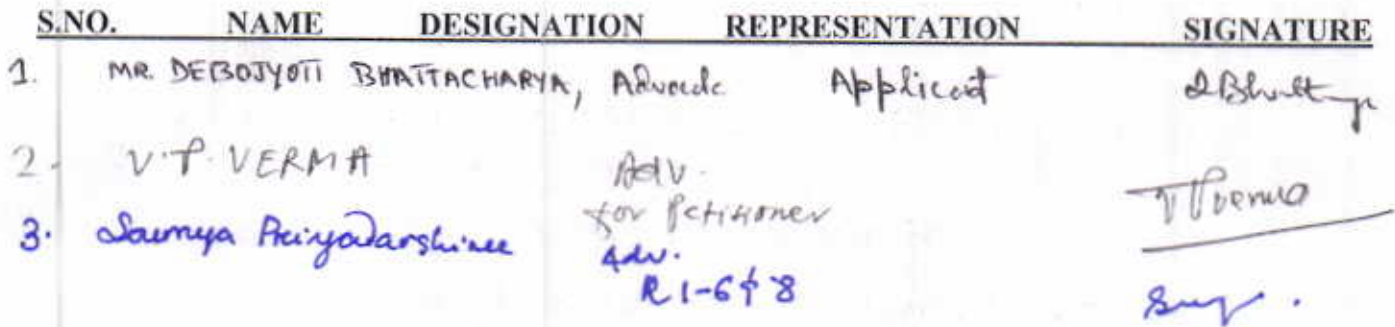 S.NO. NAME DESIGNATION REPRESENTATION SIGNATURE
1. MR. DEBOJYOTI BHATTACHARYA, Advocate Applicant
2. V.P. VERMA Adv.
for Petitioner VPVerma
3. Saumya Priyadarshinee Adv.
R 1-6 & 8